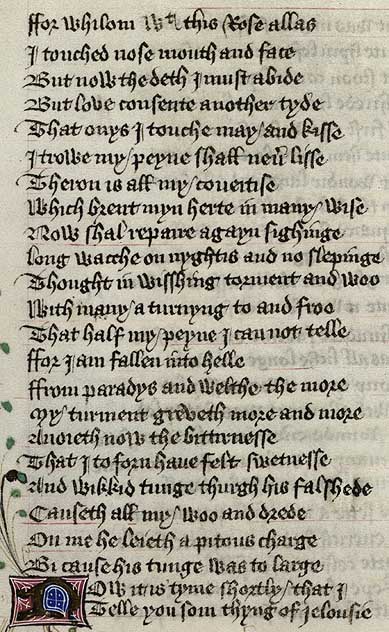 ffor whilom wt this Rose allas
I touched nose mouth and face
But now the deth I must abide
But love consente another tyde
That onys I touche may and kisse
I trowe my peyne shall neuer lisse
Theron is all my coueitise
Which brent myn herte in many wise
Now shal repaire agayn sighinge
long wacche on nyghtis and no slepinge
Thought in wisshing torment and woo
With many a turnyng to and froo
That half my peyne I can not telle
ffor I am fallen into helle
ffrom paradys and welthe the more
My turment greveth more and more
Anoieth now the bitternesse
That I toforn haue felt swetnesse
And wikkid tunge thurgh his falshede
Causeth all my woo and drede
On me he leieth a pitous charge
Bi cause his tunge was to large
Now it is tyme shortly that I
Telle you som thyng of jelousie